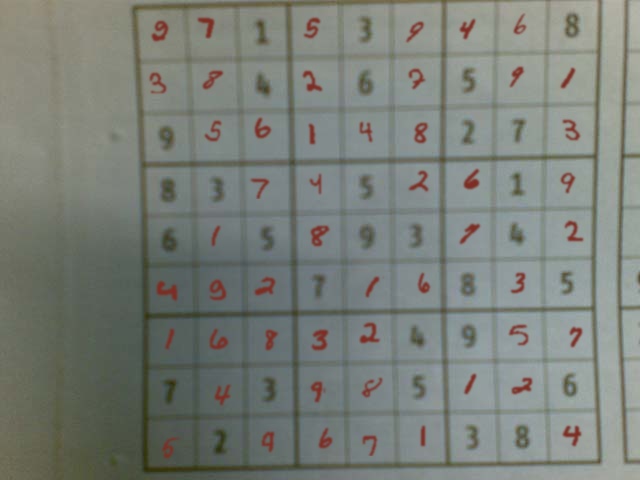 2 7 1 5 3 9 4 6 8
3 8 4 2 6 7 5 9 1
9 5 6 1 4 8 2 7 3
8 3 7 4 5 2 6 1 9
6 1 5 8 9 3 7 4 2
4 9 2 7 1 6 8 3 5
1 6 8 3 2 4 9 5 7
7 4 3 9 8 5 1 2 6
5 2 9 6 7 1 3 8 4